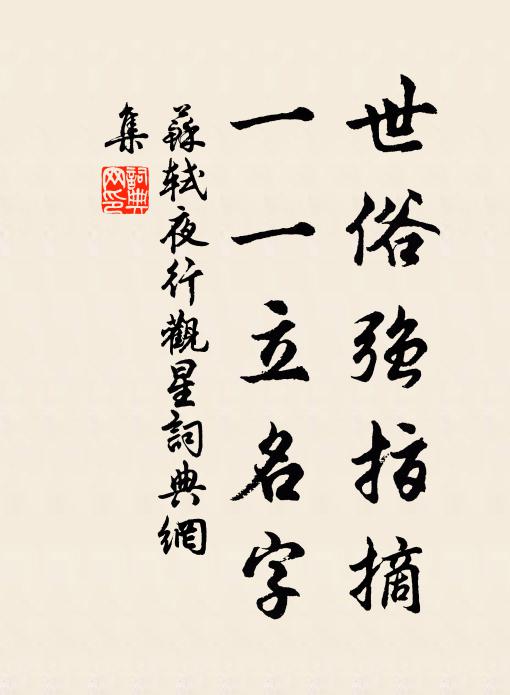 世俗強指摘
一一立名字
蘇軾夜行觀星詞典網
集
詞典網印